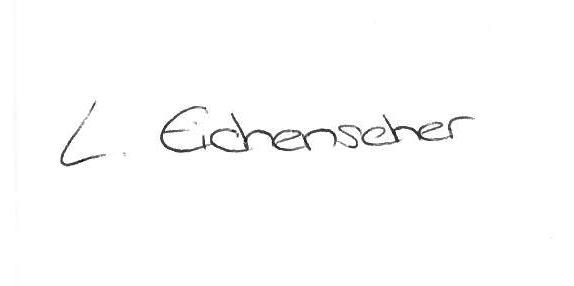 L. Eichenseher